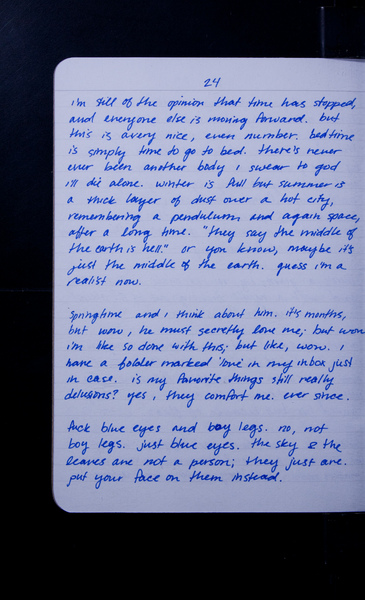 24
i'm still of the opinion that time has stopped,
and everyone else is moving forward. but
this is a very nice, even number. bedtime
is simply time to go to bed. there's never
ever been another body i swear to god
i'll die alone. winter is full but summer is
a thick layer of dust over a hot city,
remembering a pendulum and again space,
after a long time. "they say the middle of
the earth is hell." or you know, maybe it's
just the middle of the earth. guess i'm a
realist now.
springtime and i think about him. it's months,
but wow, he must secretly love me; but wow
i'm like so done with this; but like, wow. i
have a folder marked 'love' in my inbox just
in case. is my favorite things still really
delusions? yes, they comfort me. ever since.
fuck blue eyes and boy legs. no, not
boy legs. just blue eyes. the sky & the
leaves are not a person; they just are.
put your face on them instead.